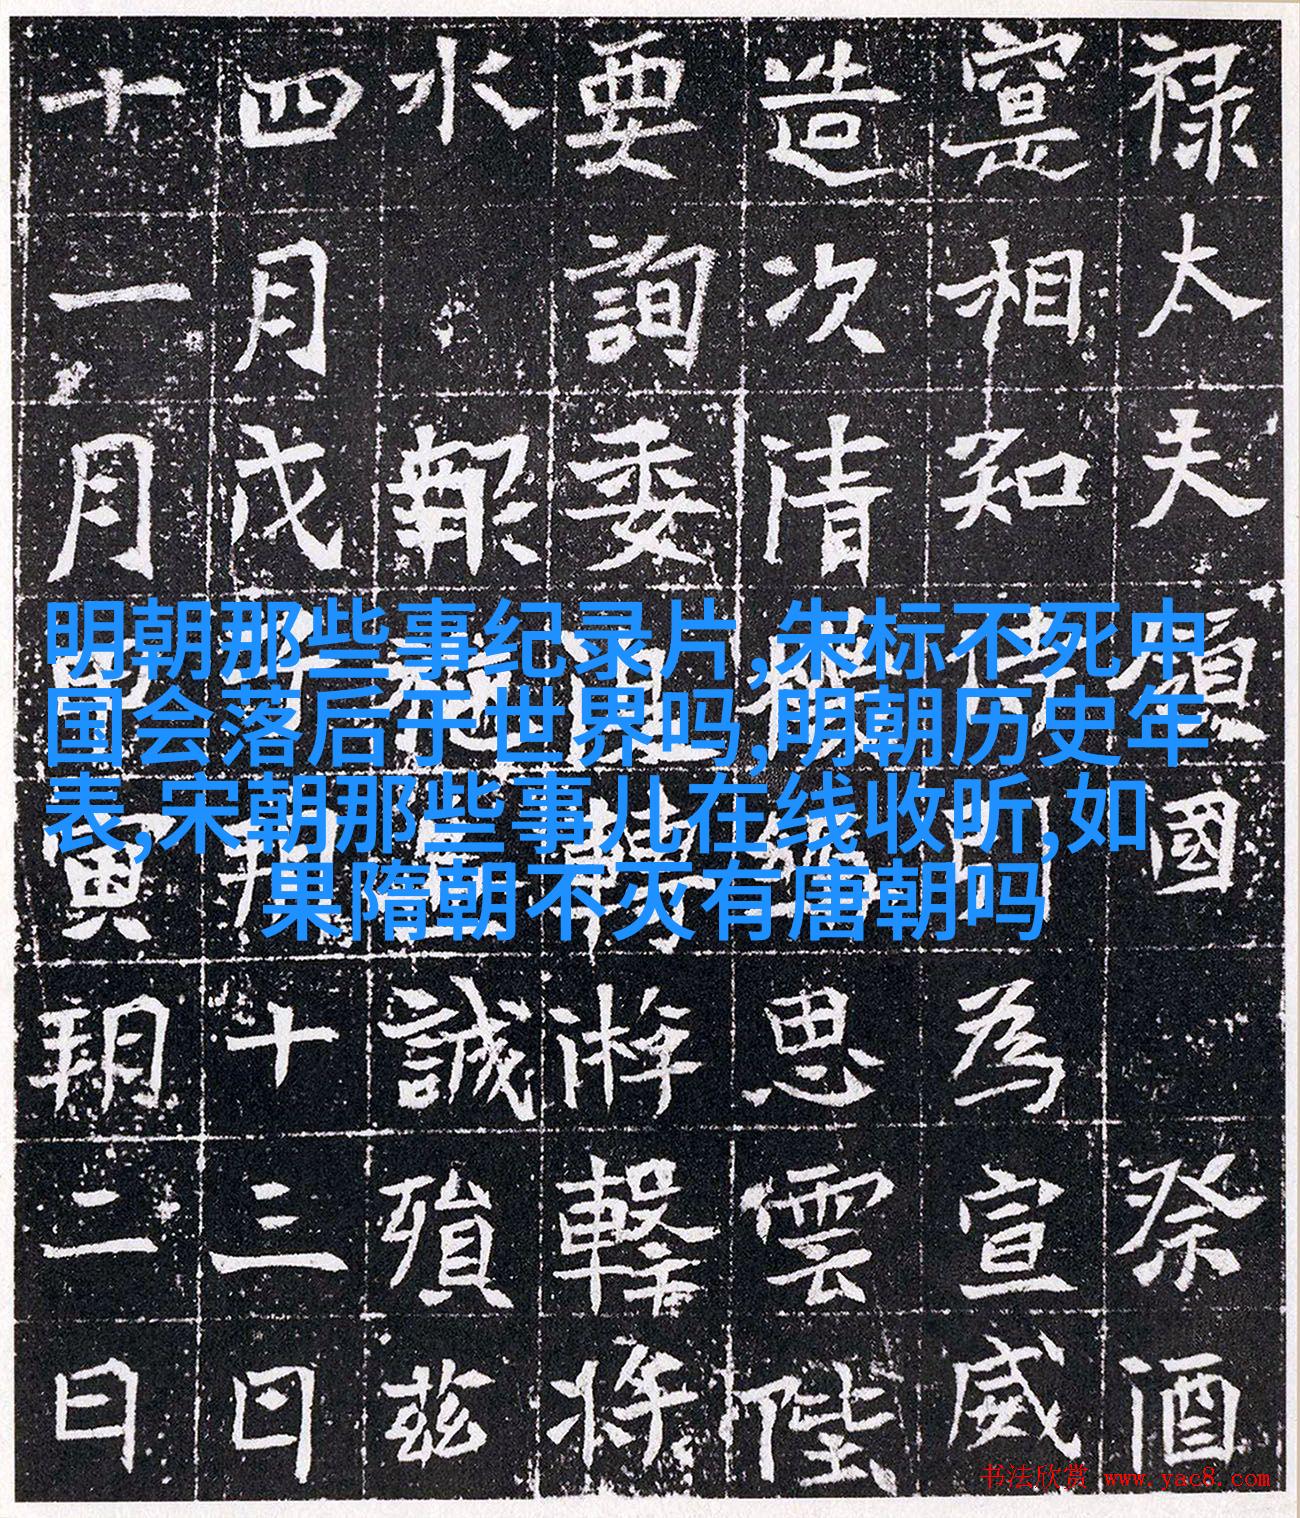 禄太夫國祭酒
寔相知為宣威
造次清思雲陛
要詢委轉游擊將
水報誠殞茲
四月戊子朔十三日
十一月寅朔二日
明朝那些事纪录片,朱标不死中
国会落后于世界吗,明朝历史年
表,宋朝那些事儿在线收听,如
果隋朝不灭有唐朝吗
书法欣赏 www.yac8.com